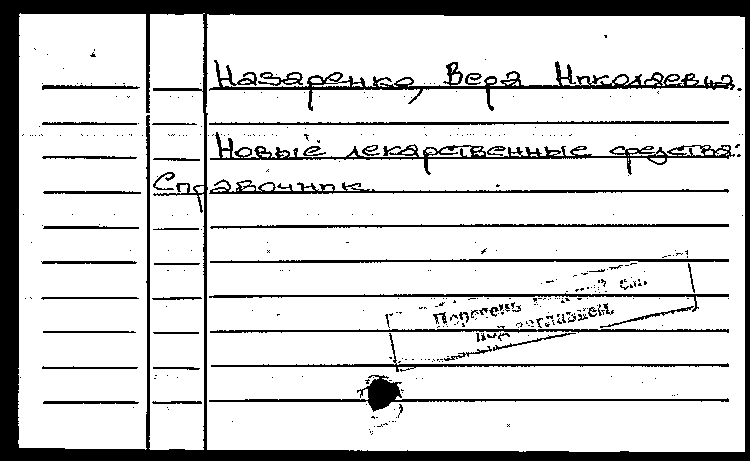 Назаренко, Вера Николаевна.
Новые лекарственные средства:
Справочник.
Перечень
под заглавием.